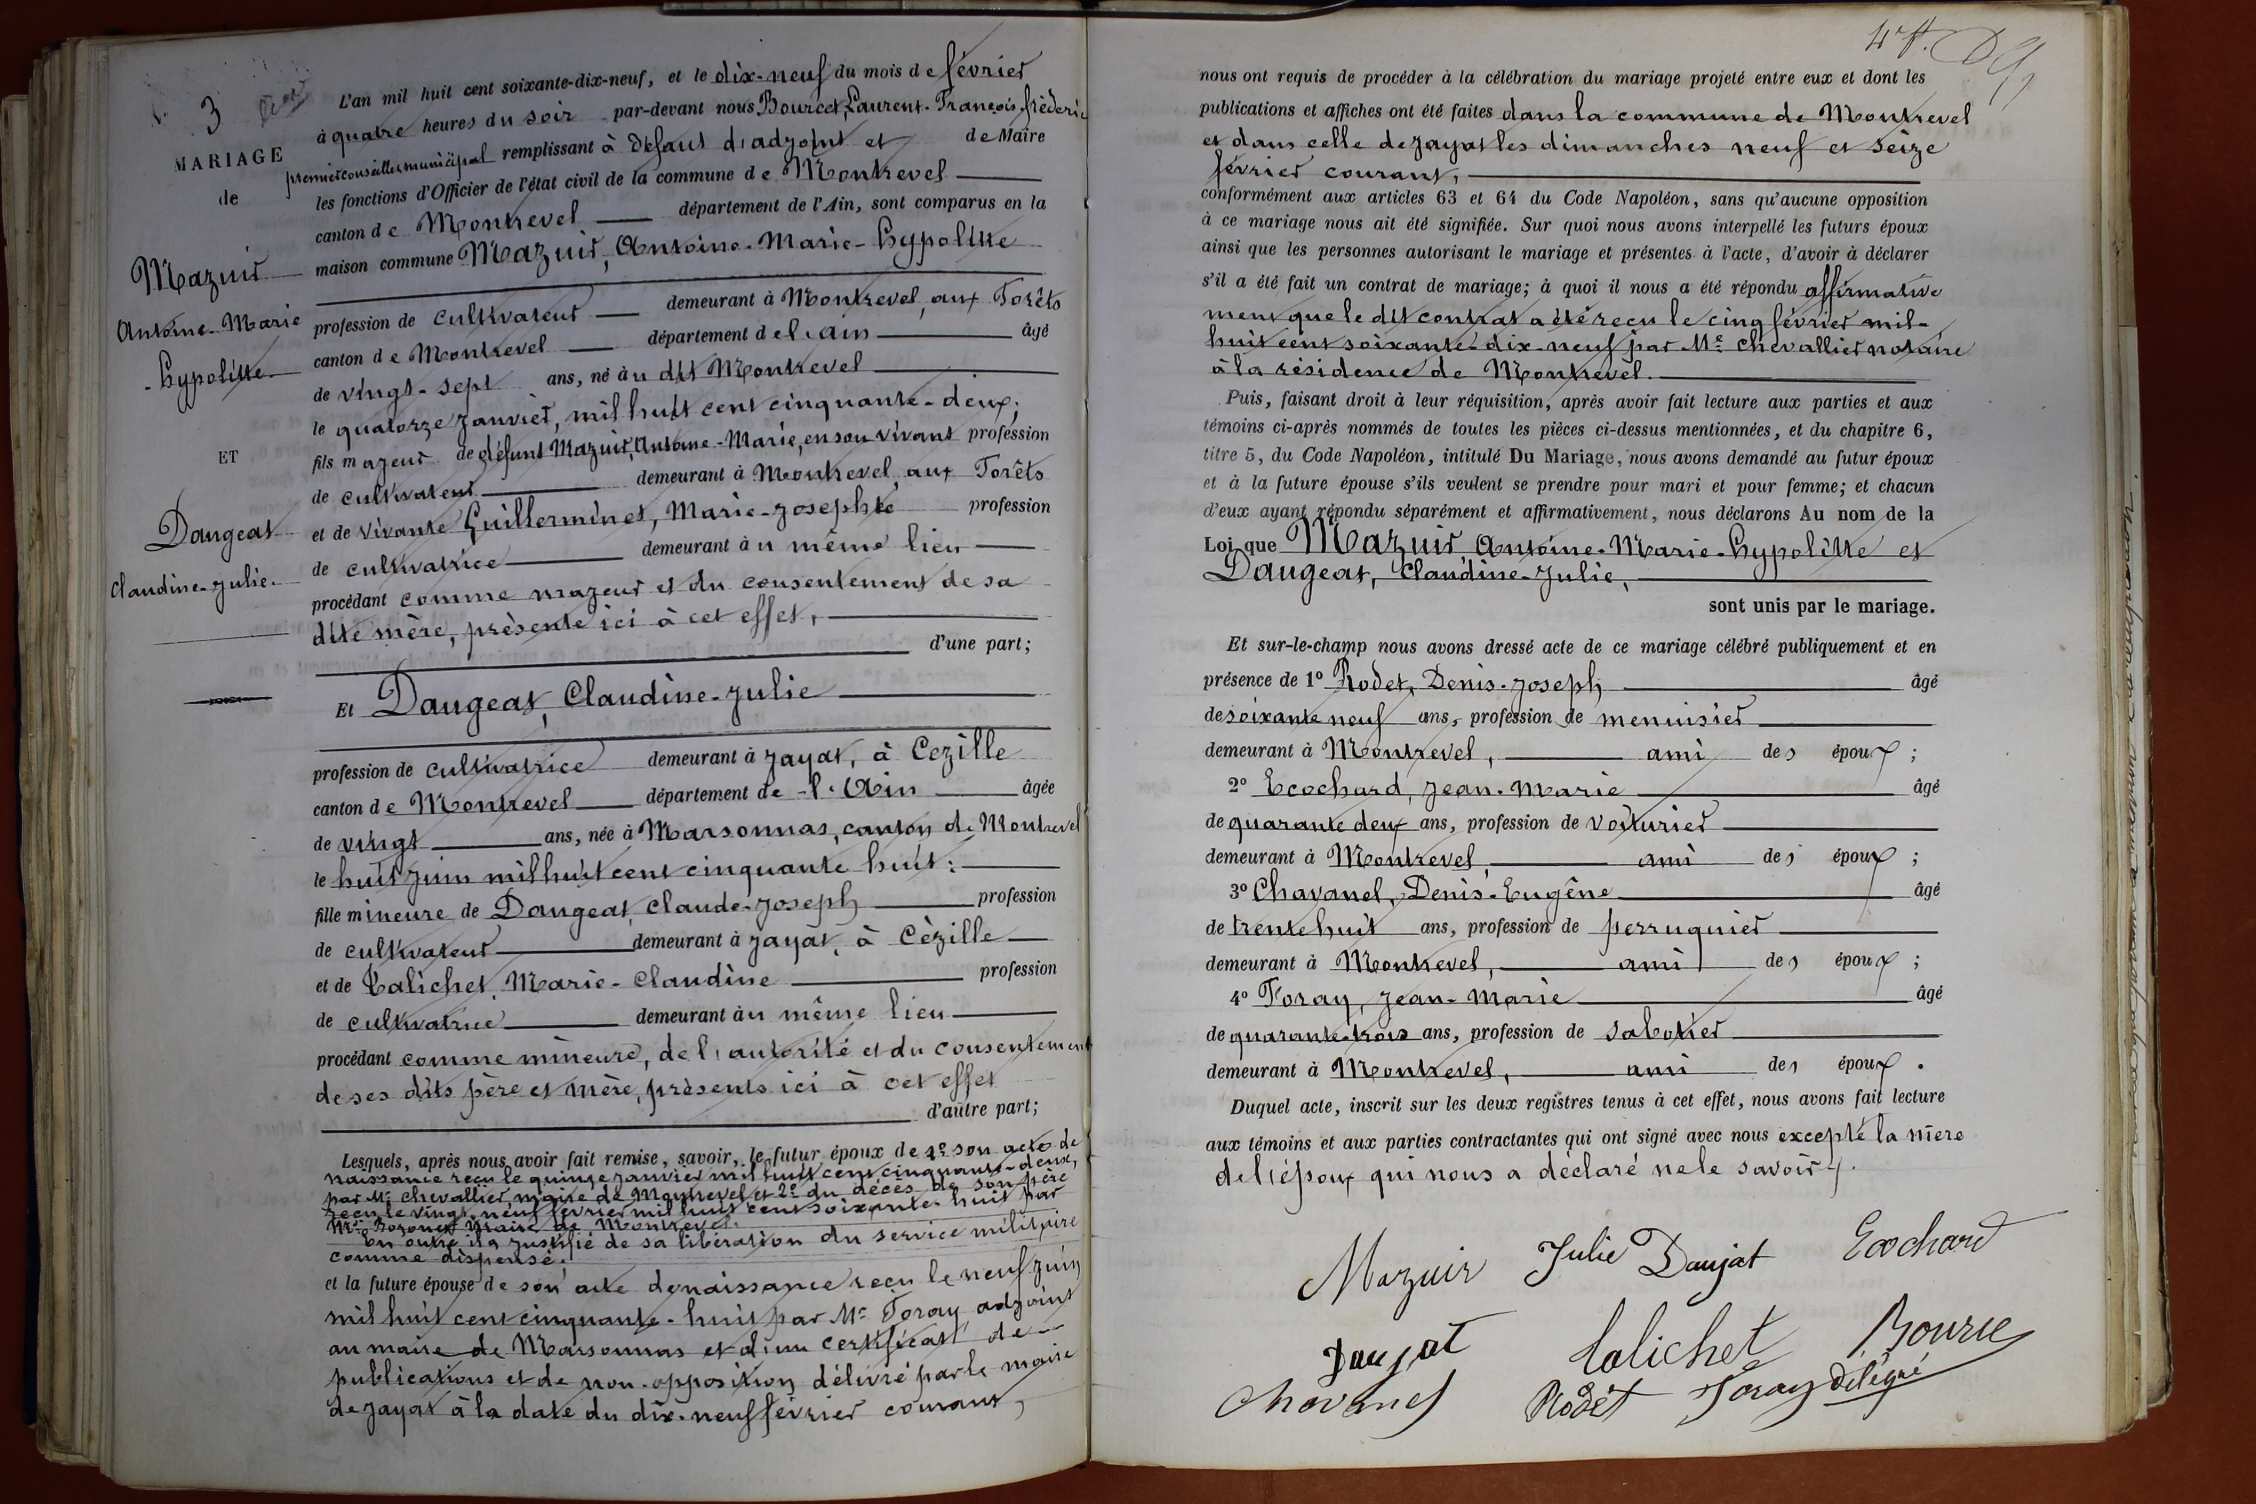 3
MARIAGE
de
Mazuir
Antoine-Marie
-hypolitte
ET
Daugeat
Claudine-Julie
L'an mil huit cent soixante-dix-neuf, et le dix-neuf du mois de février
à quatre heures du soir par-devant nous Bourcet, Laurent-François-fréderic
premier conseiller municipal remplissant à défaut d'adjoint et de Maire
les fonctions d'Officier de l'état civil de la commune de Montrevel
canton de Montrevel département de l'Ain, sont comparus en la
maison commune Mazuir, Antoine-Marie-hypolitte
profession de cultivateur demeurant à Montrevel, aux Forêts
canton de Montrevel département de l'ain âgé
de vingt-sept ans, né au dit Montrevel
le quatorze janvier, mil huit cent cinquante-deux,
fils majeur de défunt Mazuir, Antoine-Marie, en son vivant profession
de cultivateur demeurant à Montrevel aux Forêts
et de vivante Guillerminet, Marie-Josephte profession
de cultivatrice demeurant au même lieu
procédant comme majeur et du consentement de sa
dite mère, présente ici à cet effet,
d'une part;
Et Daugeat, Claudine-Julie
profession de cultivatrice demeurant à Jayat, à Cezille
canton de Montrevel département de l'Ain âgée
de vingt ans, née à Marsonnas, canton de Montrevel
le huit juin mil huit cent cinquante huit:
fille mineure de Daugeat, Claude-Joseph profession
de cultivateur demeurant à Jayat, à Cèzille
et de Calichet, Marie-Claudine profession
de cultivatrice demeurant au même lieu
procédant comme mineure, de l'autorité et du consentement
de ses dits père et mère, présents ici à cet effet
d'autre part;
Lesquels, après nous avoir fait remise, savoir, le futur époux de 1º son acte de
naissance reçu le quinze janvier mil huit cent cinquante-deux,
par Mr chevallier, maire de Montrevel et 2º du décès de son père
reçu le vingt-neuf février mil huit cent soixante-huit par
Mr maire de Montrevel.
En outre il a justifié de sa libération du service militaire
comme dispensé.
et la future épouse de son acte de naissance reçu le neuf juin
mil huit cent cinquante-huit par Mr Foray adjoint
au maire de Marsonnas et d'un certificat de
publications et de non-opposition délivré par le maire
de Jayat à la date du dix-neuf février courant,
nous ont requis de procéder à la célébration du mariage projeté entre eux et dont les
publications et affiches ont été faites dans la commune de Montrevel
et dans celle de Jayat les dimanches neuf et seize
février courant,
conformément aux articles 63 et 64 du Code Napoléon, sans qu'aucune opposition
à ce mariage nous ait été signifiée. Sur quoi nous avons interpellé les futurs époux
ainsi que les personnes autorisant le mariage et présentes à l'acte, d'avoir à déclarer
s'il a été fait un contrat de mariage; à quoi il nous a été répondu affirmative
ment que le dit contrat a été reçu le cinq février mil-
huit cent soixante-dix-neuf par Me chevallier notaire
à la résidence de Montrevel.
Puis, faisant droit à leur réquisition, après avoir fait lecture aux parties et aux
témoins ci-après nommés de toutes les pièces ci-dessus mentionnées, et du chapitre 6,
titre 5, du Code Napoléon, intitulé Du Mariage, nous avons demandé au futur époux
et à la future épouse s'ils veulent se prendre pour mari et pour femme; et chacun
d'eux ayant répondu séparément et affirmativement, nous déclarons Au nom de la
Loi que Mazuir Antoine-Marie-hypolitte et
Daugeat, Claudine-Julie,
sont unis par le mariage.
Et sur-le-champ nous avons dressé acte de ce mariage célébré publiquement et en
présence de 1º Rodet, Denis-Joseph âgé
de soixante neuf ans, profession de menuisier
demeurant à Montrevel, ami des époux;
2º Ecochard, Jean-Marie âgé
de quarante deux ans, profession de voiturier
demeurant à Montrevel, ami des époux;
3º Chavanel, Denis-Eugêne âgé
de trente huit ans, profession de perruquier
demeurant à Montrevel, ami des époux;
4º Foray, Jean-Marie âgé
de quarante-trois ans, profession de sabotier
demeurant à Montrevel, ami des époux.
Duquel acte, inscrit sur les deux registres tenus à cet effet, nous avons fait lecture
aux témoins et aux parties contractantes qui ont signé avec nous excepté la mère
de l'époux qui nous a déclaré ne le savoir.
Mazuir Julie Daujat Ecochard
Daujat Calichet
Chavanel Rodet Foray délégué